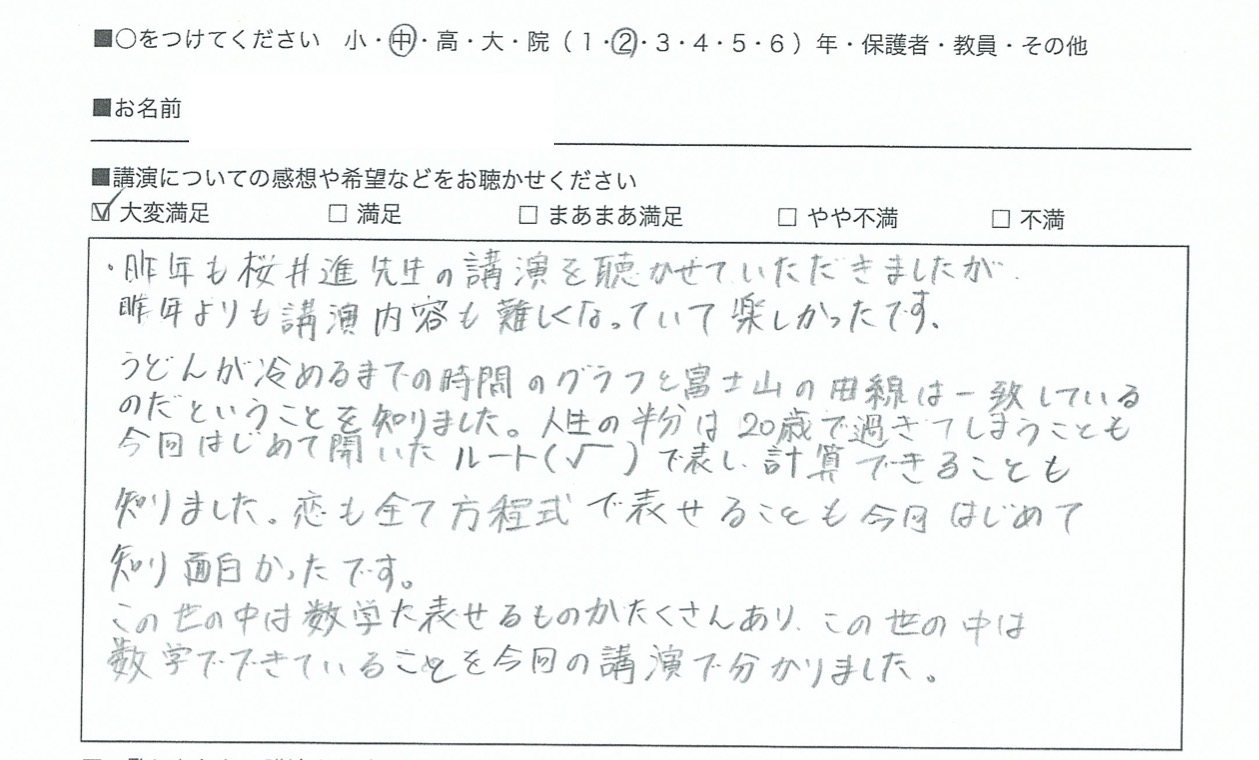 ■○をつけてください 小・中・高・大・院（1・2・3・4・5・6）年・保護者・教員・その他
■お名前
■講演についての感想や希望などをお聴かせください
☑ 大変満足 □ 満足 □ まあまあ満足 □ やや不満 □ 不満
・昨年も桜井進先生の講演を聴かせていただきましたが
昨年よりも講演内容も難しくなっていて楽しかったです。
うどんが冷めるまでの時間のグラフと富士山の曲線は一致している
のだということを知りました。人生の半分は20歳で過ぎてしまうことも
今回はじめて聞いたルート(√‾)で表し、計算できることも
知りました。恋も全て方程式で表せることも今回はじめて
知り面白かったです。
この世の中は数学た表せるものがたくさんあり、この世の中は
数字でできていることを今回の講演で分かりました。